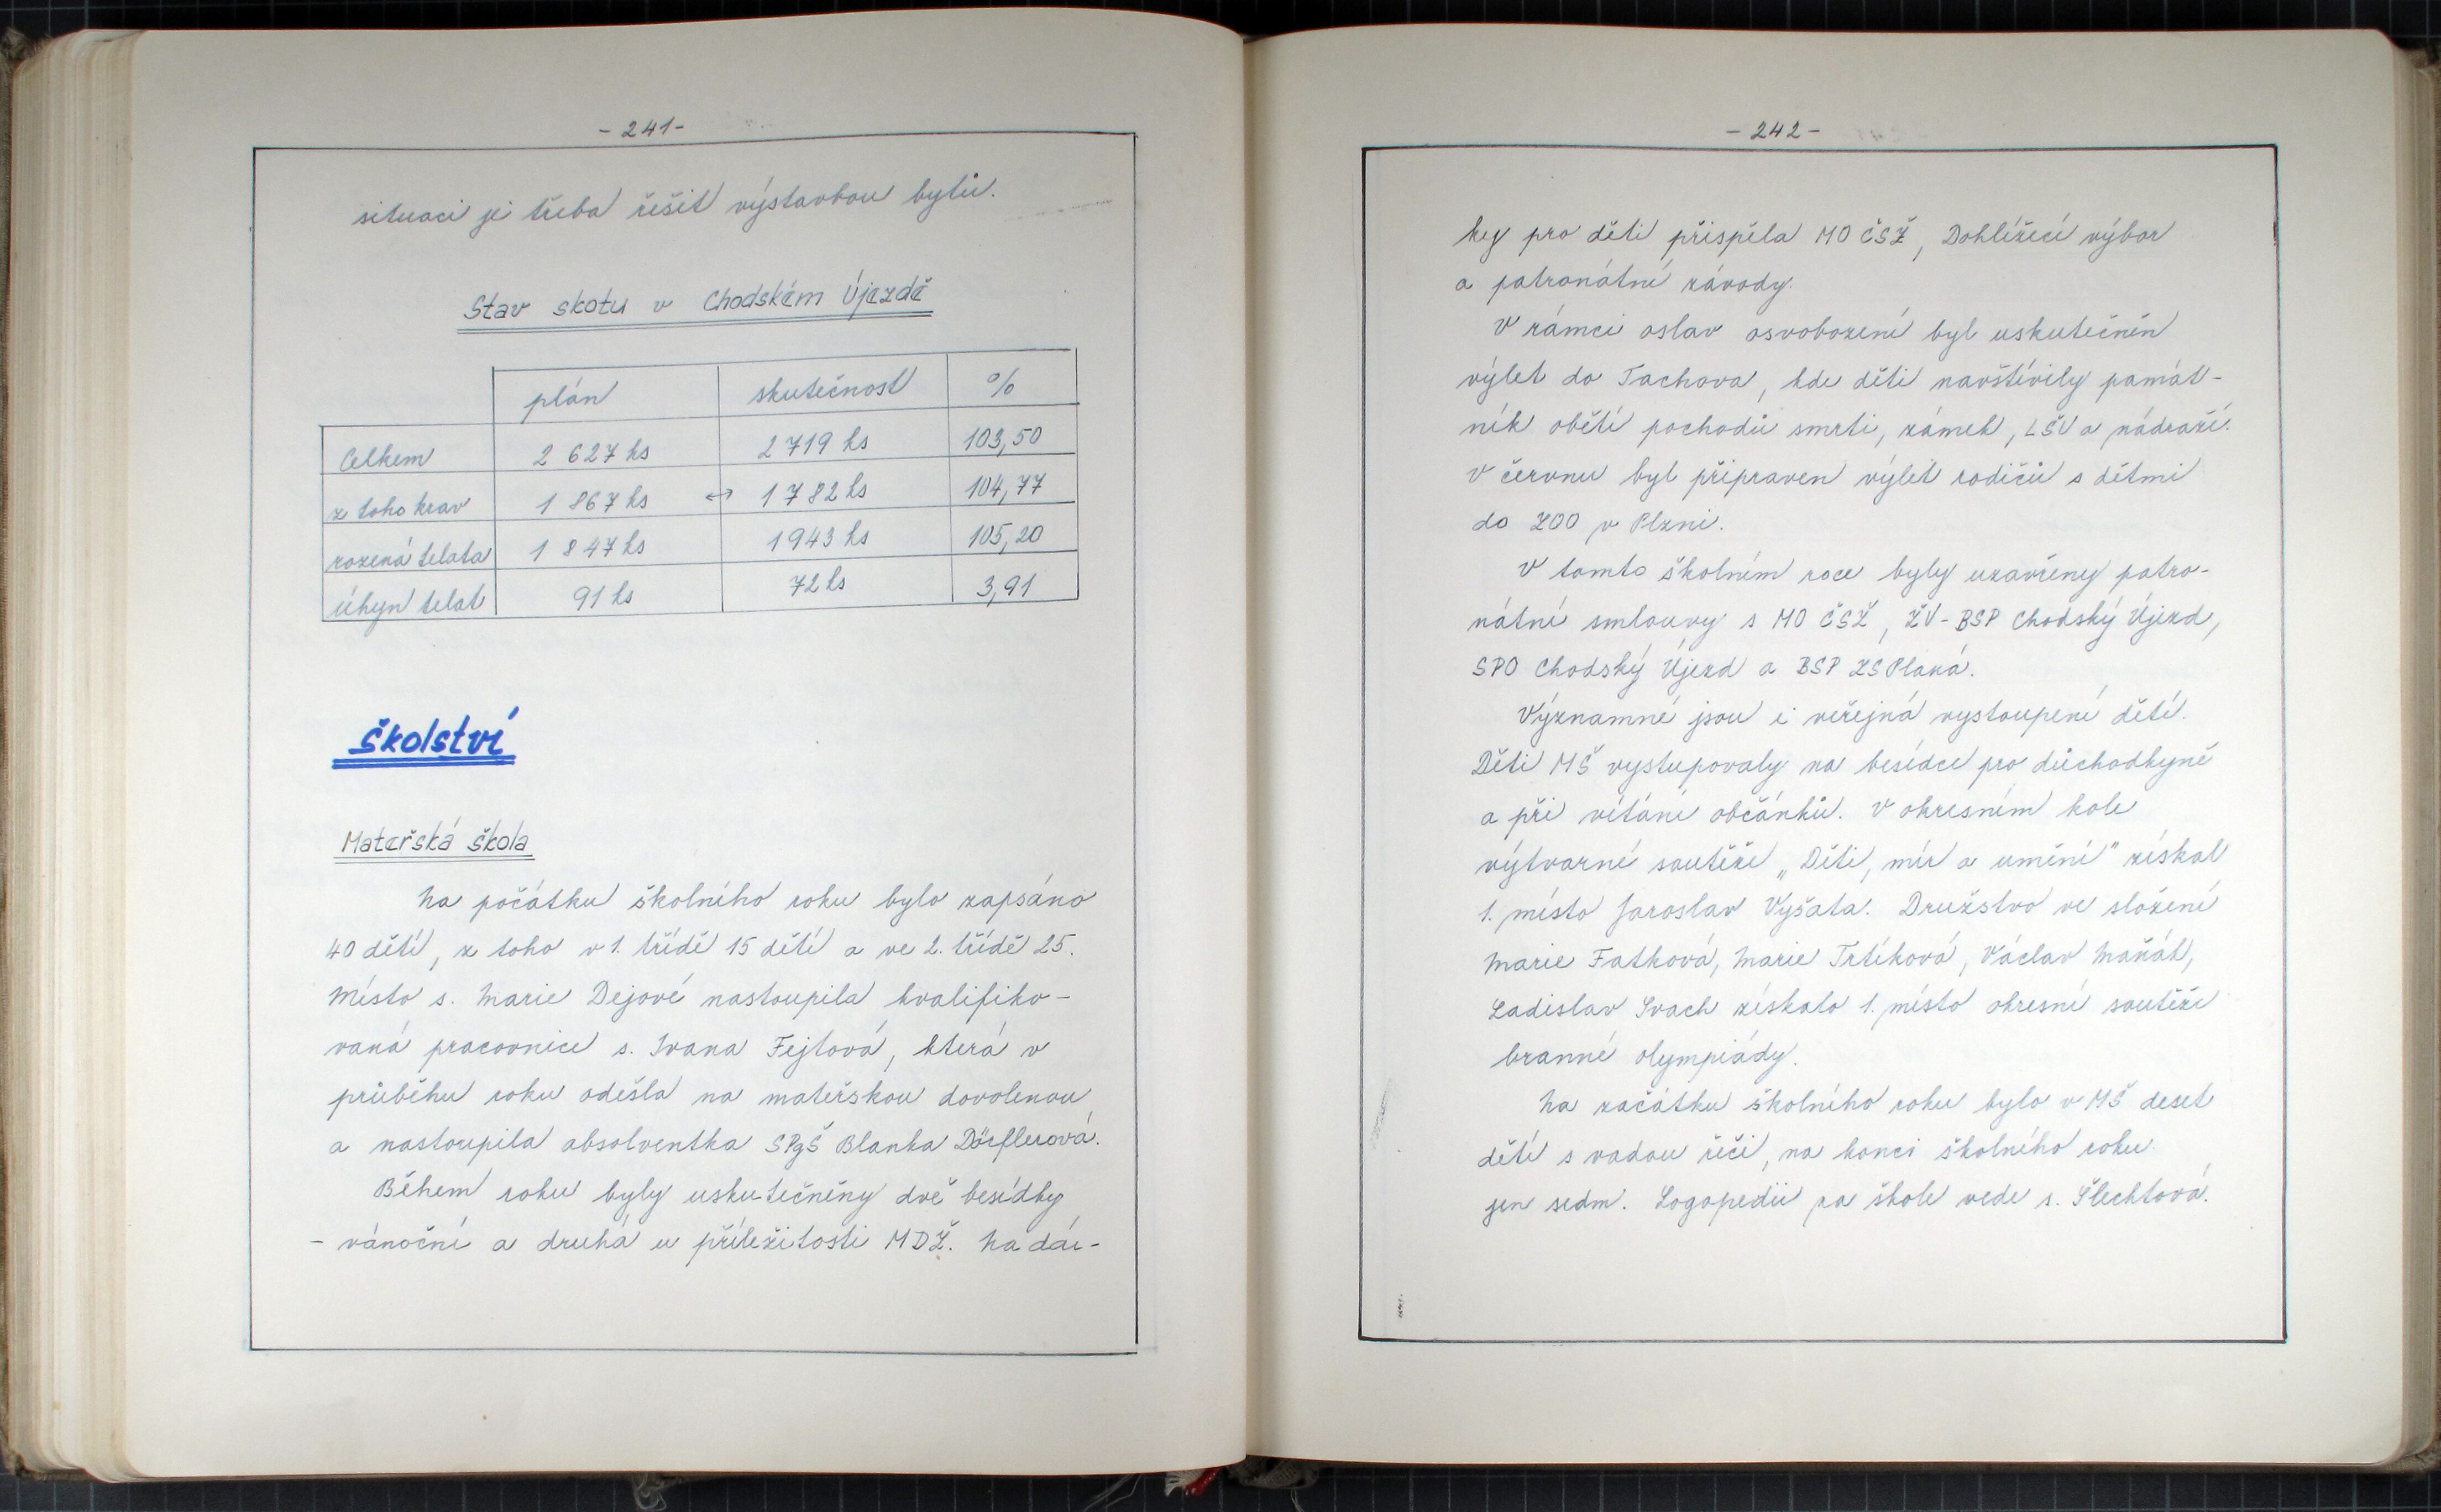 - 241 -
situaci je třeba řešit výstavbou bytů.
Stav skotu v Chodském Újezdě
plán skutečnost %
Celkem 2 627 ks 2 719 ks 103,50
z toho krav 1 867 ks ↔ 1 782 ks 104,77
rozená telata 1 847 ks 1 943 ks 105,20
úhyn telat 91 ks 72 ks 3,91
Školství
Mateřská škola
Na počátku školního roku bylo zapsáno
40 dětí, z toho v 1. třídě 15 dětí a ve 2. třídě 25.
Místo s. Marie Dejové nastoupila kvalifiko-
vaná pracovnice s. Ivana Fejtová, která v
průběhu roku odešla na mateřskou dovolenou
a nastoupila absolventka SPgŠ Blanka Dörflerová.
Během roku byly uskutečněny dvě besídky
- vánoční a druhá u příležitosti MDŽ. Na dár-
- 242 -
ky pro děti přispěla MO ČSŽ, Dohlížecí výbor
a patronátní závody.
V rámci oslav osvobození byl uskutečněn
výlet do Tachova, kde děti navštívily památ-
ník obětí pochodů smrti, zámek, LŠU a nádraží.
V červnu byl připraven výlet rodičů s dětmi
do ZOO v Plzni.
V tomto školním roce byly uzavřeny patro-
nátní smlouvy s MO ČSŽ, ŽV - BSP Chodský Újezd,
SPO Chodský Újezd a BSP ZS Planá.
Významné jsou i veřejná vystoupení dětí.
Děti MŠ vystupovaly na besídce pro důchodkyně
a při vítání občánků. V okresním kole
výtvarné soutěže „Děti, mír a umění" získal
1. místo Jaroslav Vyšata. Družstvo ve složení
Marie Fatková, Marie Trtíková, Václav Maňát,
Ladislav Ivach získalo 1. místo okresní soutěže
branné olympiády.
Na začátku školního roku bylo v MŠ deset
dětí s vadou řeči, na konci školního roku
jen sedm. Logopedii na škole vede s. Šlechtová.